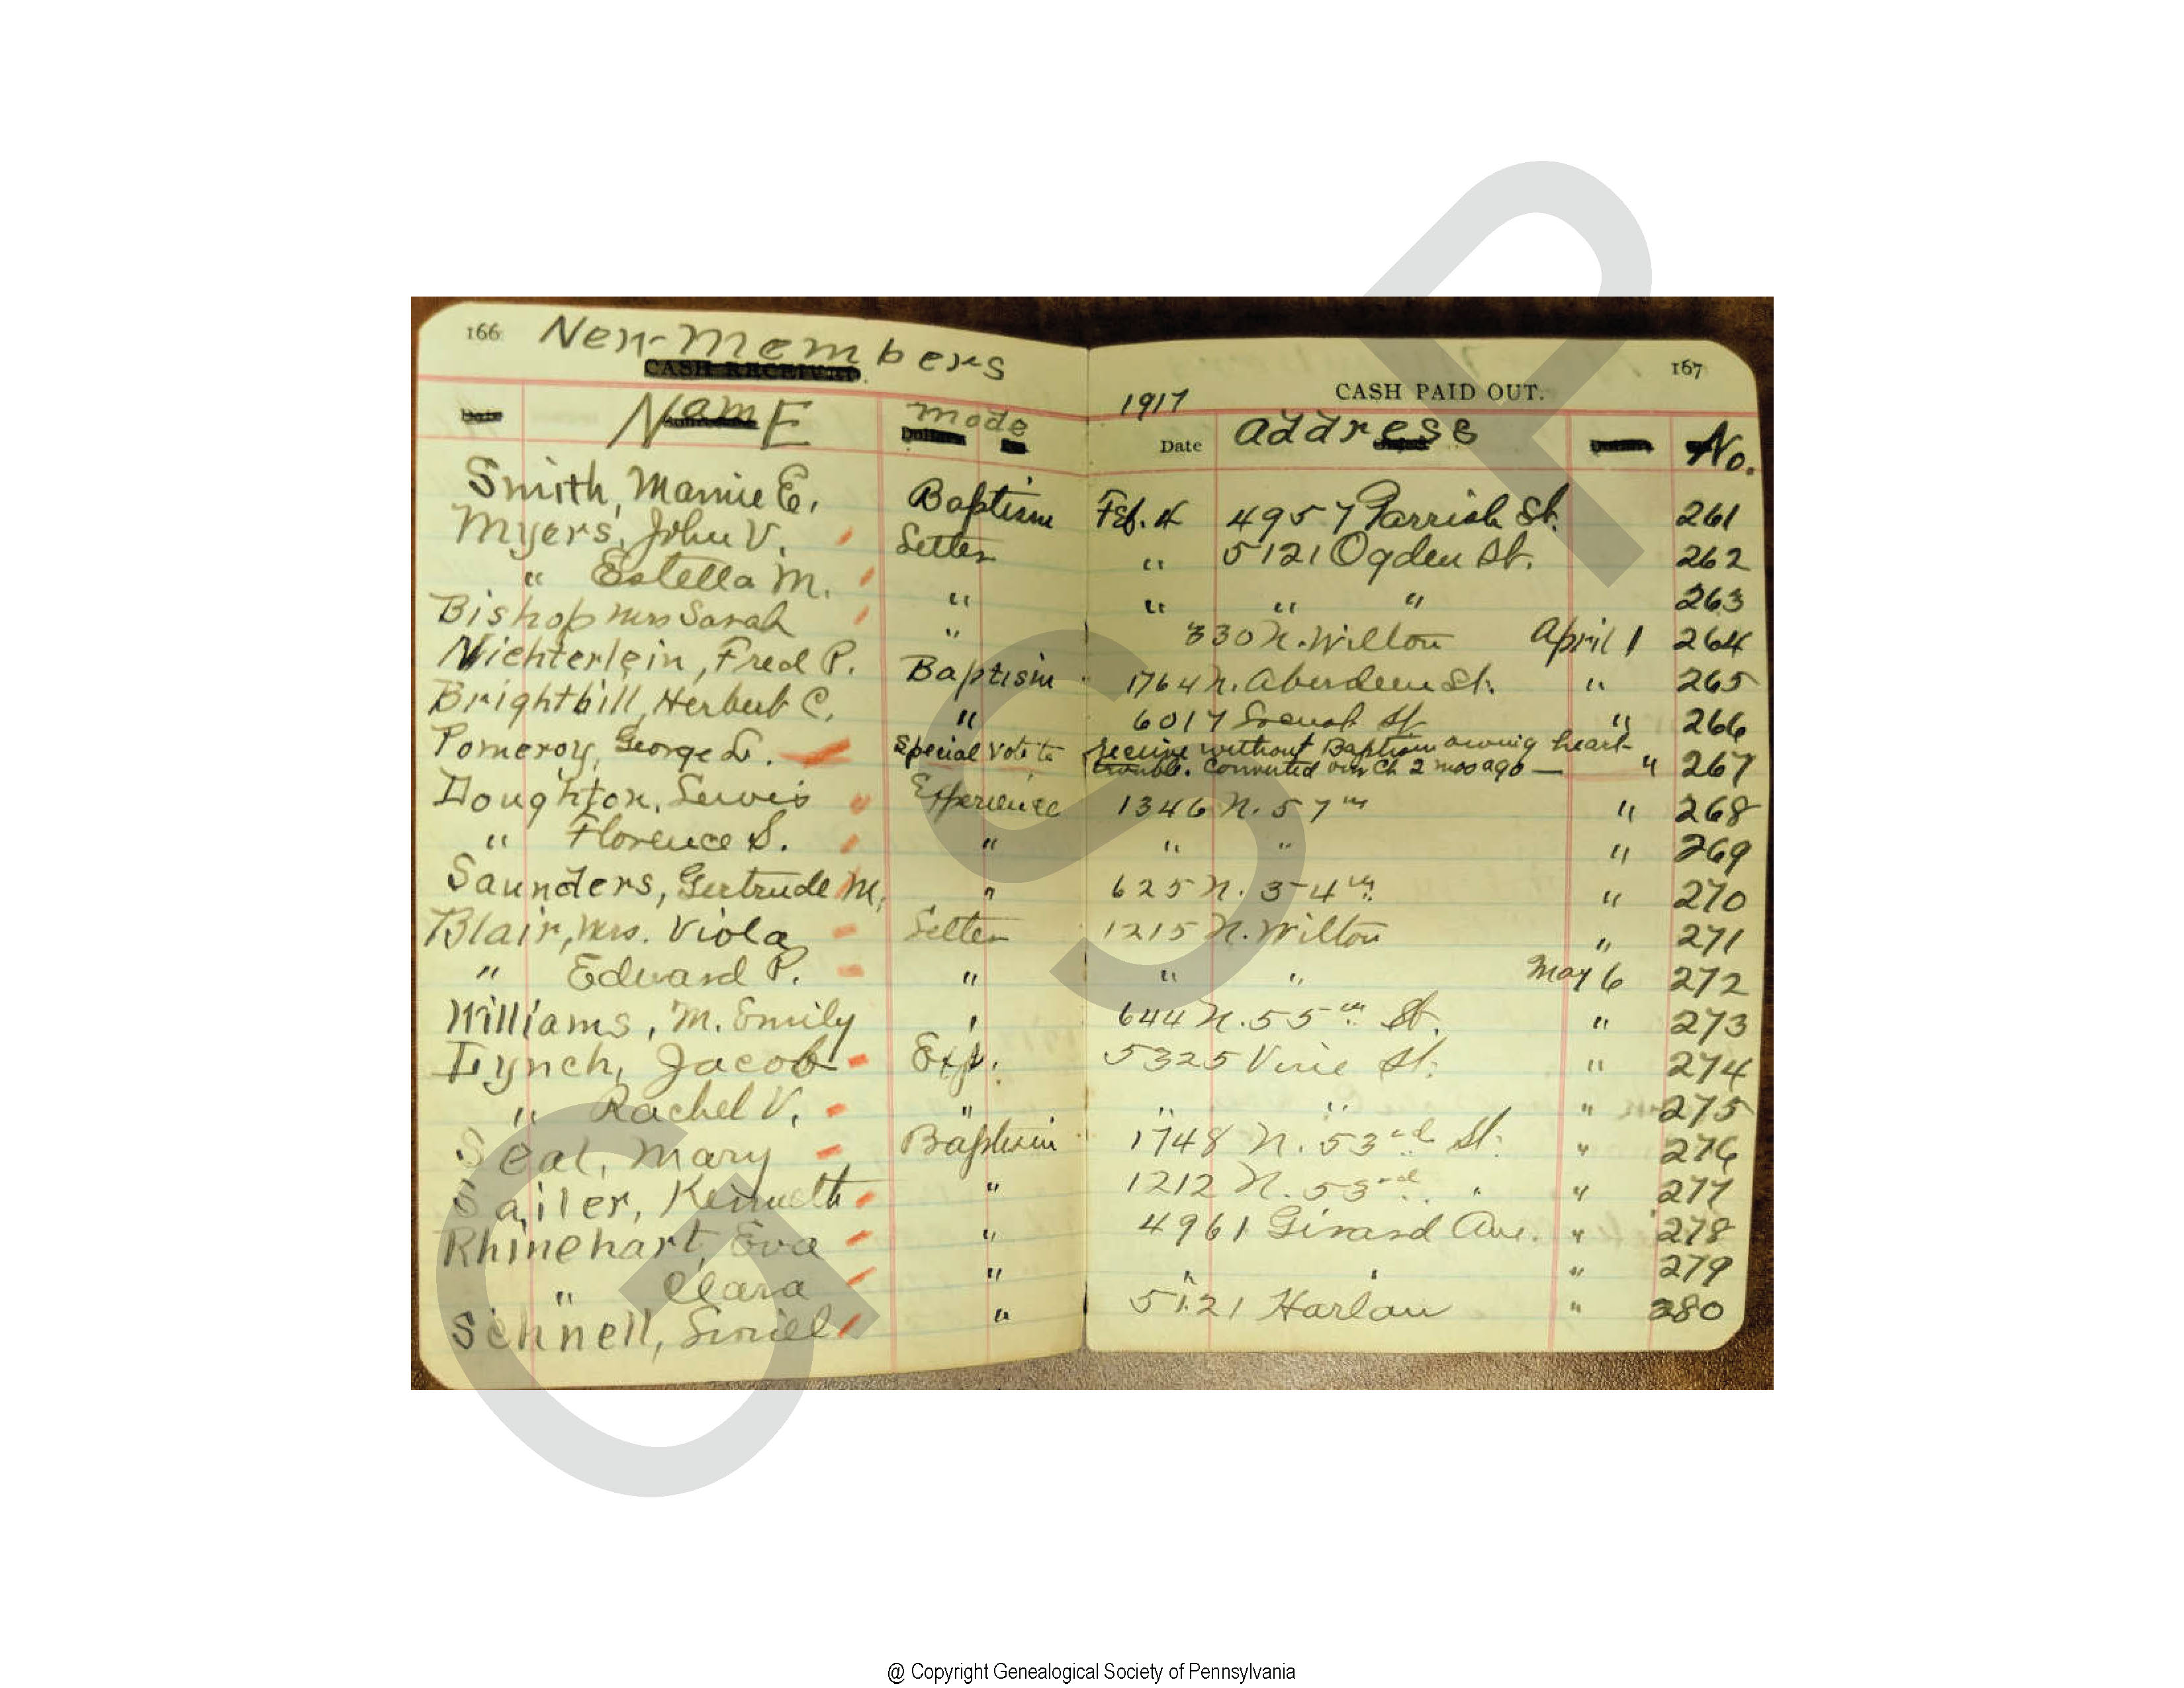 166 New-Members
CASH RECEIVED.
1917 CASH PAID OUT. 167
Name Mode Date Address No.
Smith, Mamie E. Baptism Feb. 4 4957 Parrish St. 261
Myers, John V. Letter " 5121 Ogden St. 262
" Estella M. " " " " 263
Bishop Mrs Sarah " 330 N. Wilton April 1 264
Nichterlein, Fred P. Baptism 1764 N. Aberdeen St. " 265
Brightbill, Herbert C. " 6017 Locust St " 266
Pomeroy, George L. Special Vote to receive without Baptism owing heart-
trouble. Converted our Ch 2 mos ago — " 267
Doughton, Lewis Experience 1346 N. 57th " 268
" Florence S. " " " " 269
Saunders, Gertrude M. " 625 N. 54th " 270
Blair, Mrs. Viola Letter 1215 N. Wilton " 271
" Edward P. " " " May 6 272
Williams, M. Emily " 644 N. 55th St. " 273
Lynch, Jacob Exp. 5325 Vine St. " 274
" Rachel V. " " " " 275
Seal, Mary Baptism 1748 N. 53rd St. " 276
Sailer, Kenneth " 1212 N. 53rd " " 277
Rhinehart, Eva " 4961 Girard Ave. " 278
" Clara " " " " 279
Schnell, " 5121 Harlan " 280
GSP
@ Copyright Genealogical Society of Pennsylvania